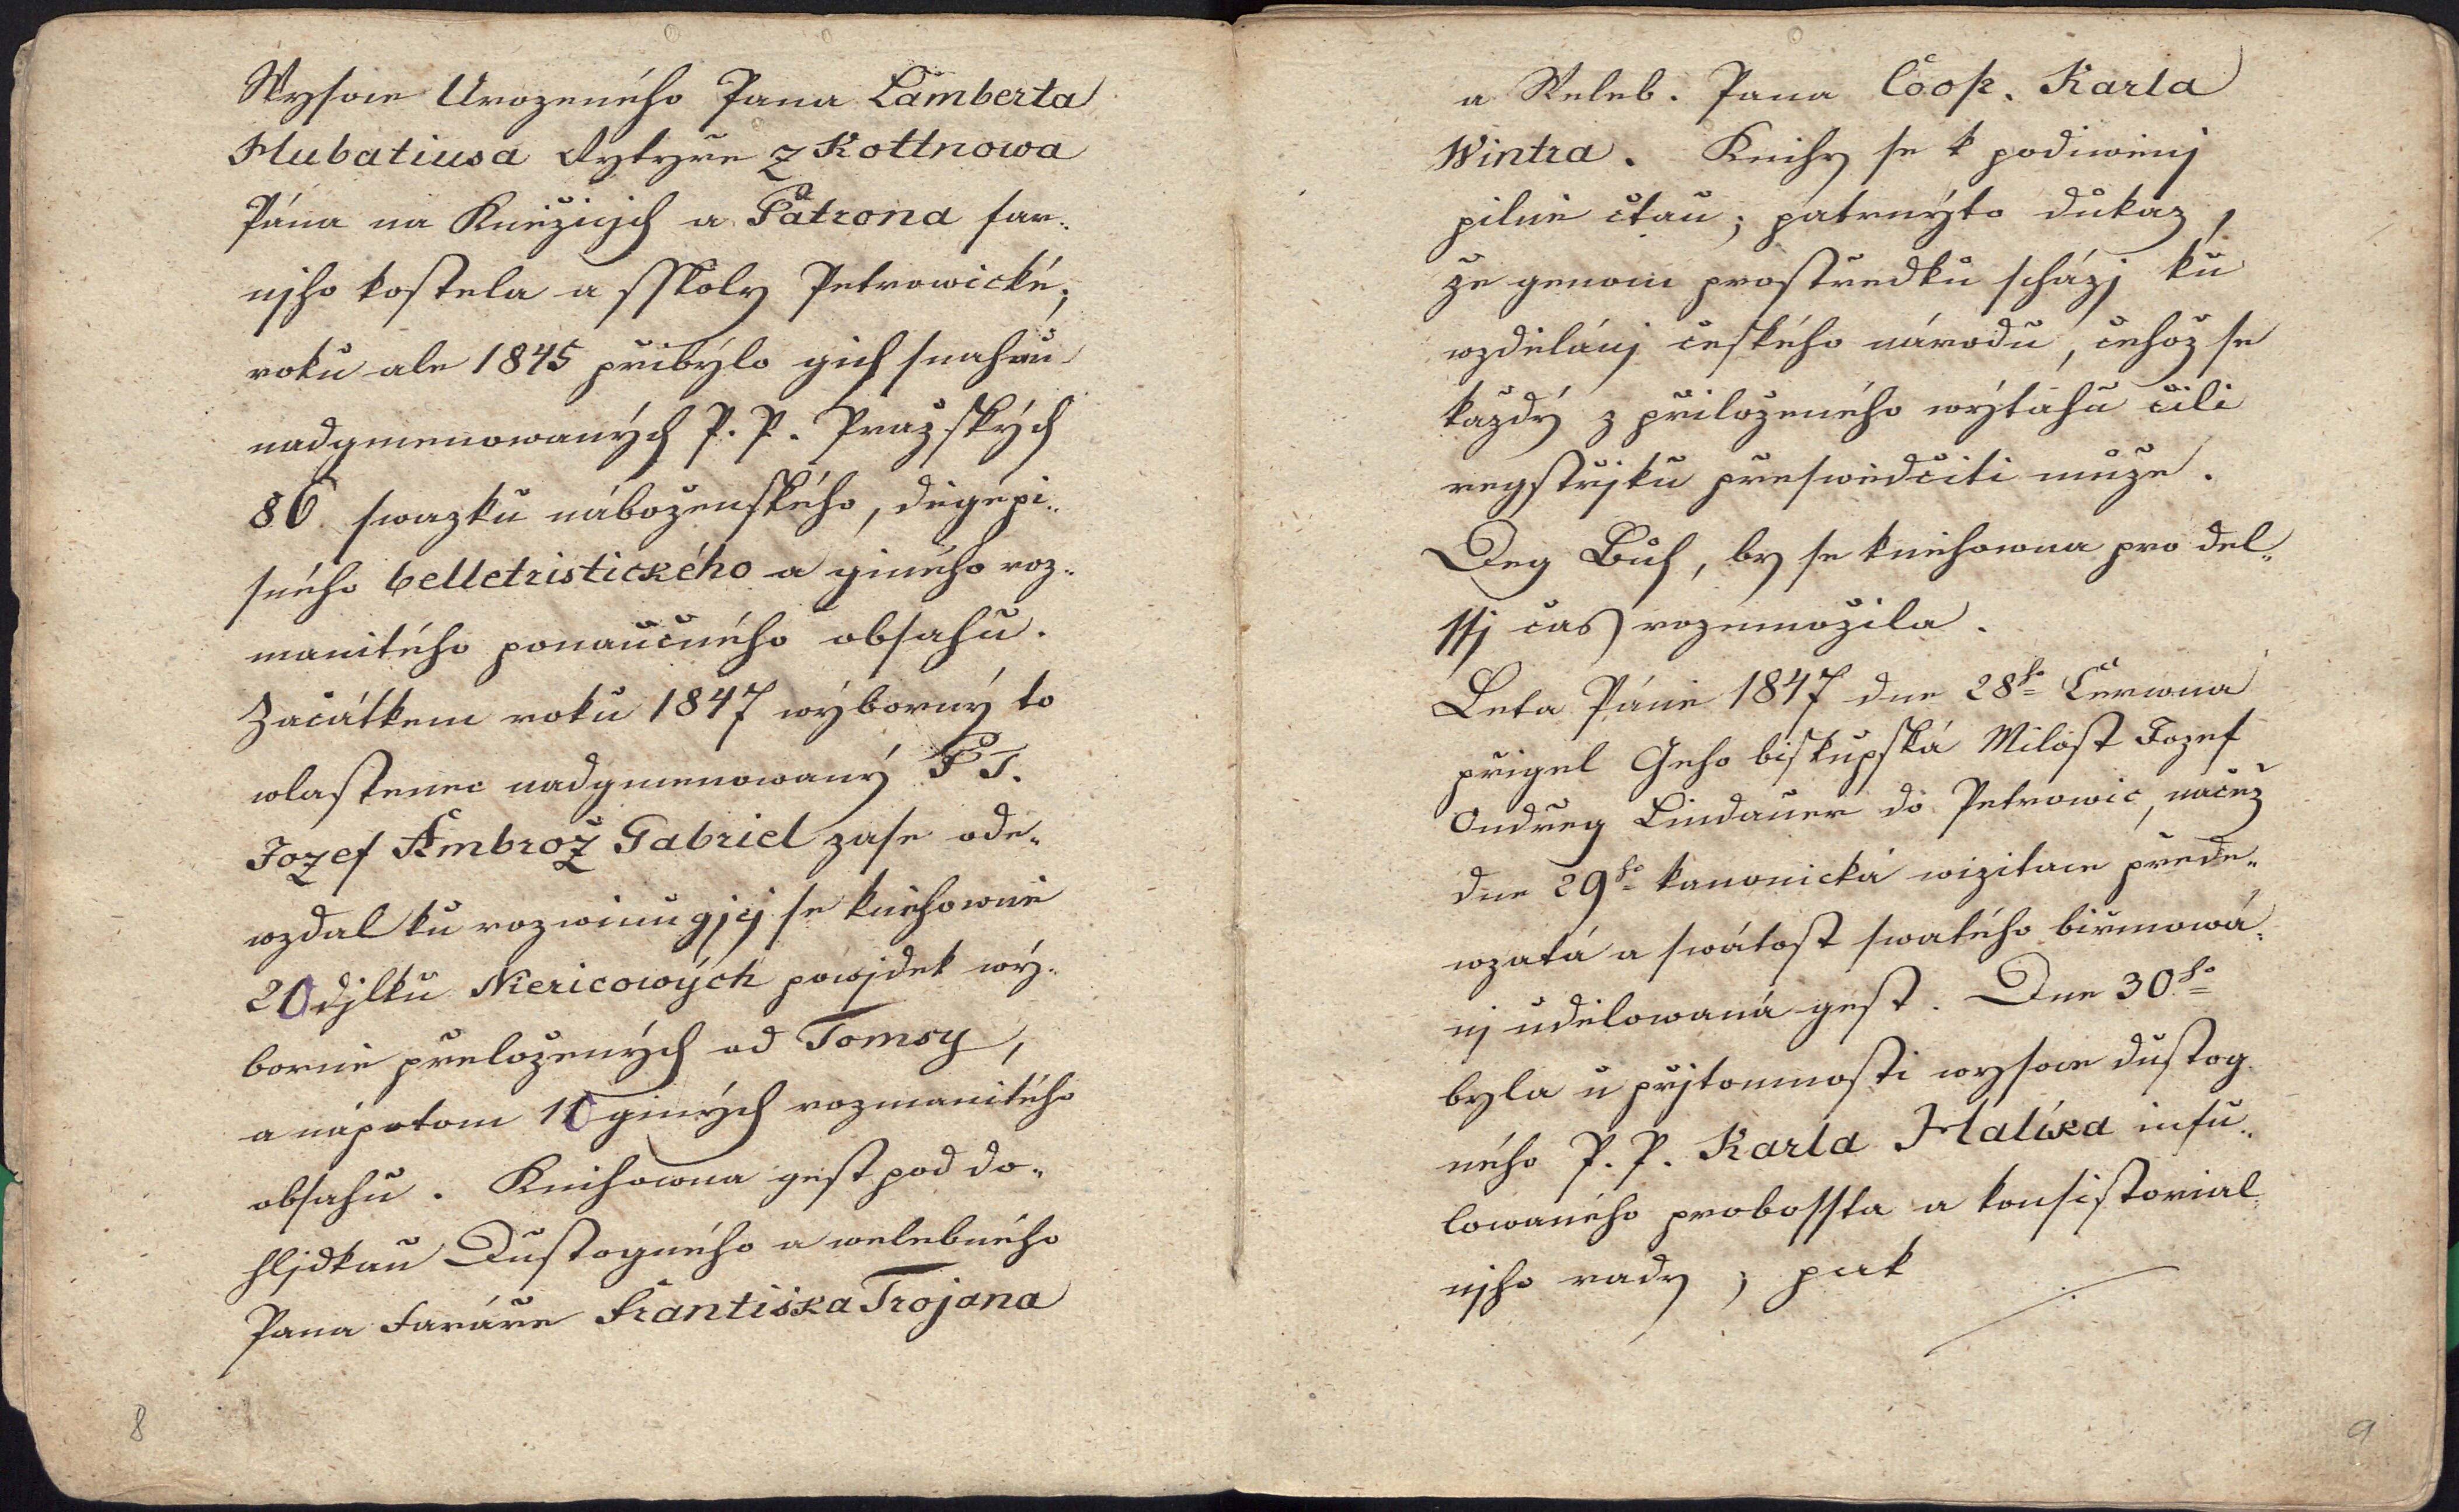 Wysoce Urozeného Pana Lamberta
Hubatiusa Rytyře z Kottnowa
Pána na Kněžicých a Patrona far„
njho kostela a sskoly Petrowické;
roku ale 1845 přibýlo gich snahau
nadgmenowaných P. P. Pražských
86 swazku náboženského, děgepi„
sného belletristického a giného roz„
manitého ponaučného obsahu.
Začátkem roku 1847 wýborný to
wlastenec nadgmenowaný P T.
Jozef Ambrož Gabriel zase ode„
wzdal ku rozwinugjcý se kněhowně
20 djlku Niericowých powjdek wý„
borně přeložených od Tomsy,
a nápotom 10 giných rozmanitého
obsahu. Knihowna gest pod do„
hljdkau Důstogného a welebného
Pana Faráře Františka Trojana
8
a Weleb. Pana Coop. Karla
Wintra. Knihy se k podiwenj
pilně čtau; patrnýto důkaz,
že genom prostředků scházj ku
wzdělánj českého národu, čehož se
každý z přiloženého wýtahu čili
regstřjku přeswědčiti může.
Deg Bůh, by se kněhowna pro del„
ssj čas rozmnožila.
Leta Páně 1847 dne 28ho Čerwna
přigel Geho biskupská Milost Jozef
Ondřeg Lindauer do Petrowic, načež
dne 29ho kanonická wizitace přede„
wzatá a swátost swatého biřmowá„
nj udělowaná gest. Dne 30ho
byla u přjtomnosti wysoce důstog
ného P. P. Karla Haljka infu„
lowaného probossta a konsistorial
njho rady; pak
9